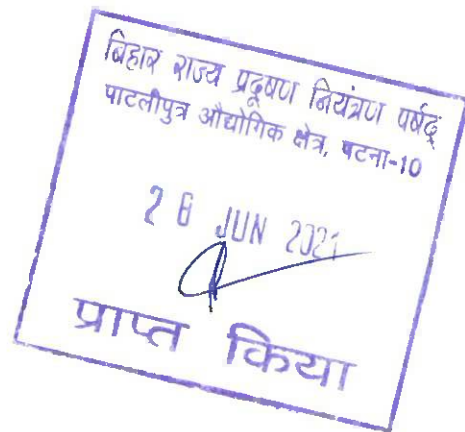 बिहार राज्य प्रदूषण नियंत्रण पर्षद्
पाटलीपुत्र औद्योगिक क्षेत्र, पटना-10
26 JUN 2021
प्राप्त किया